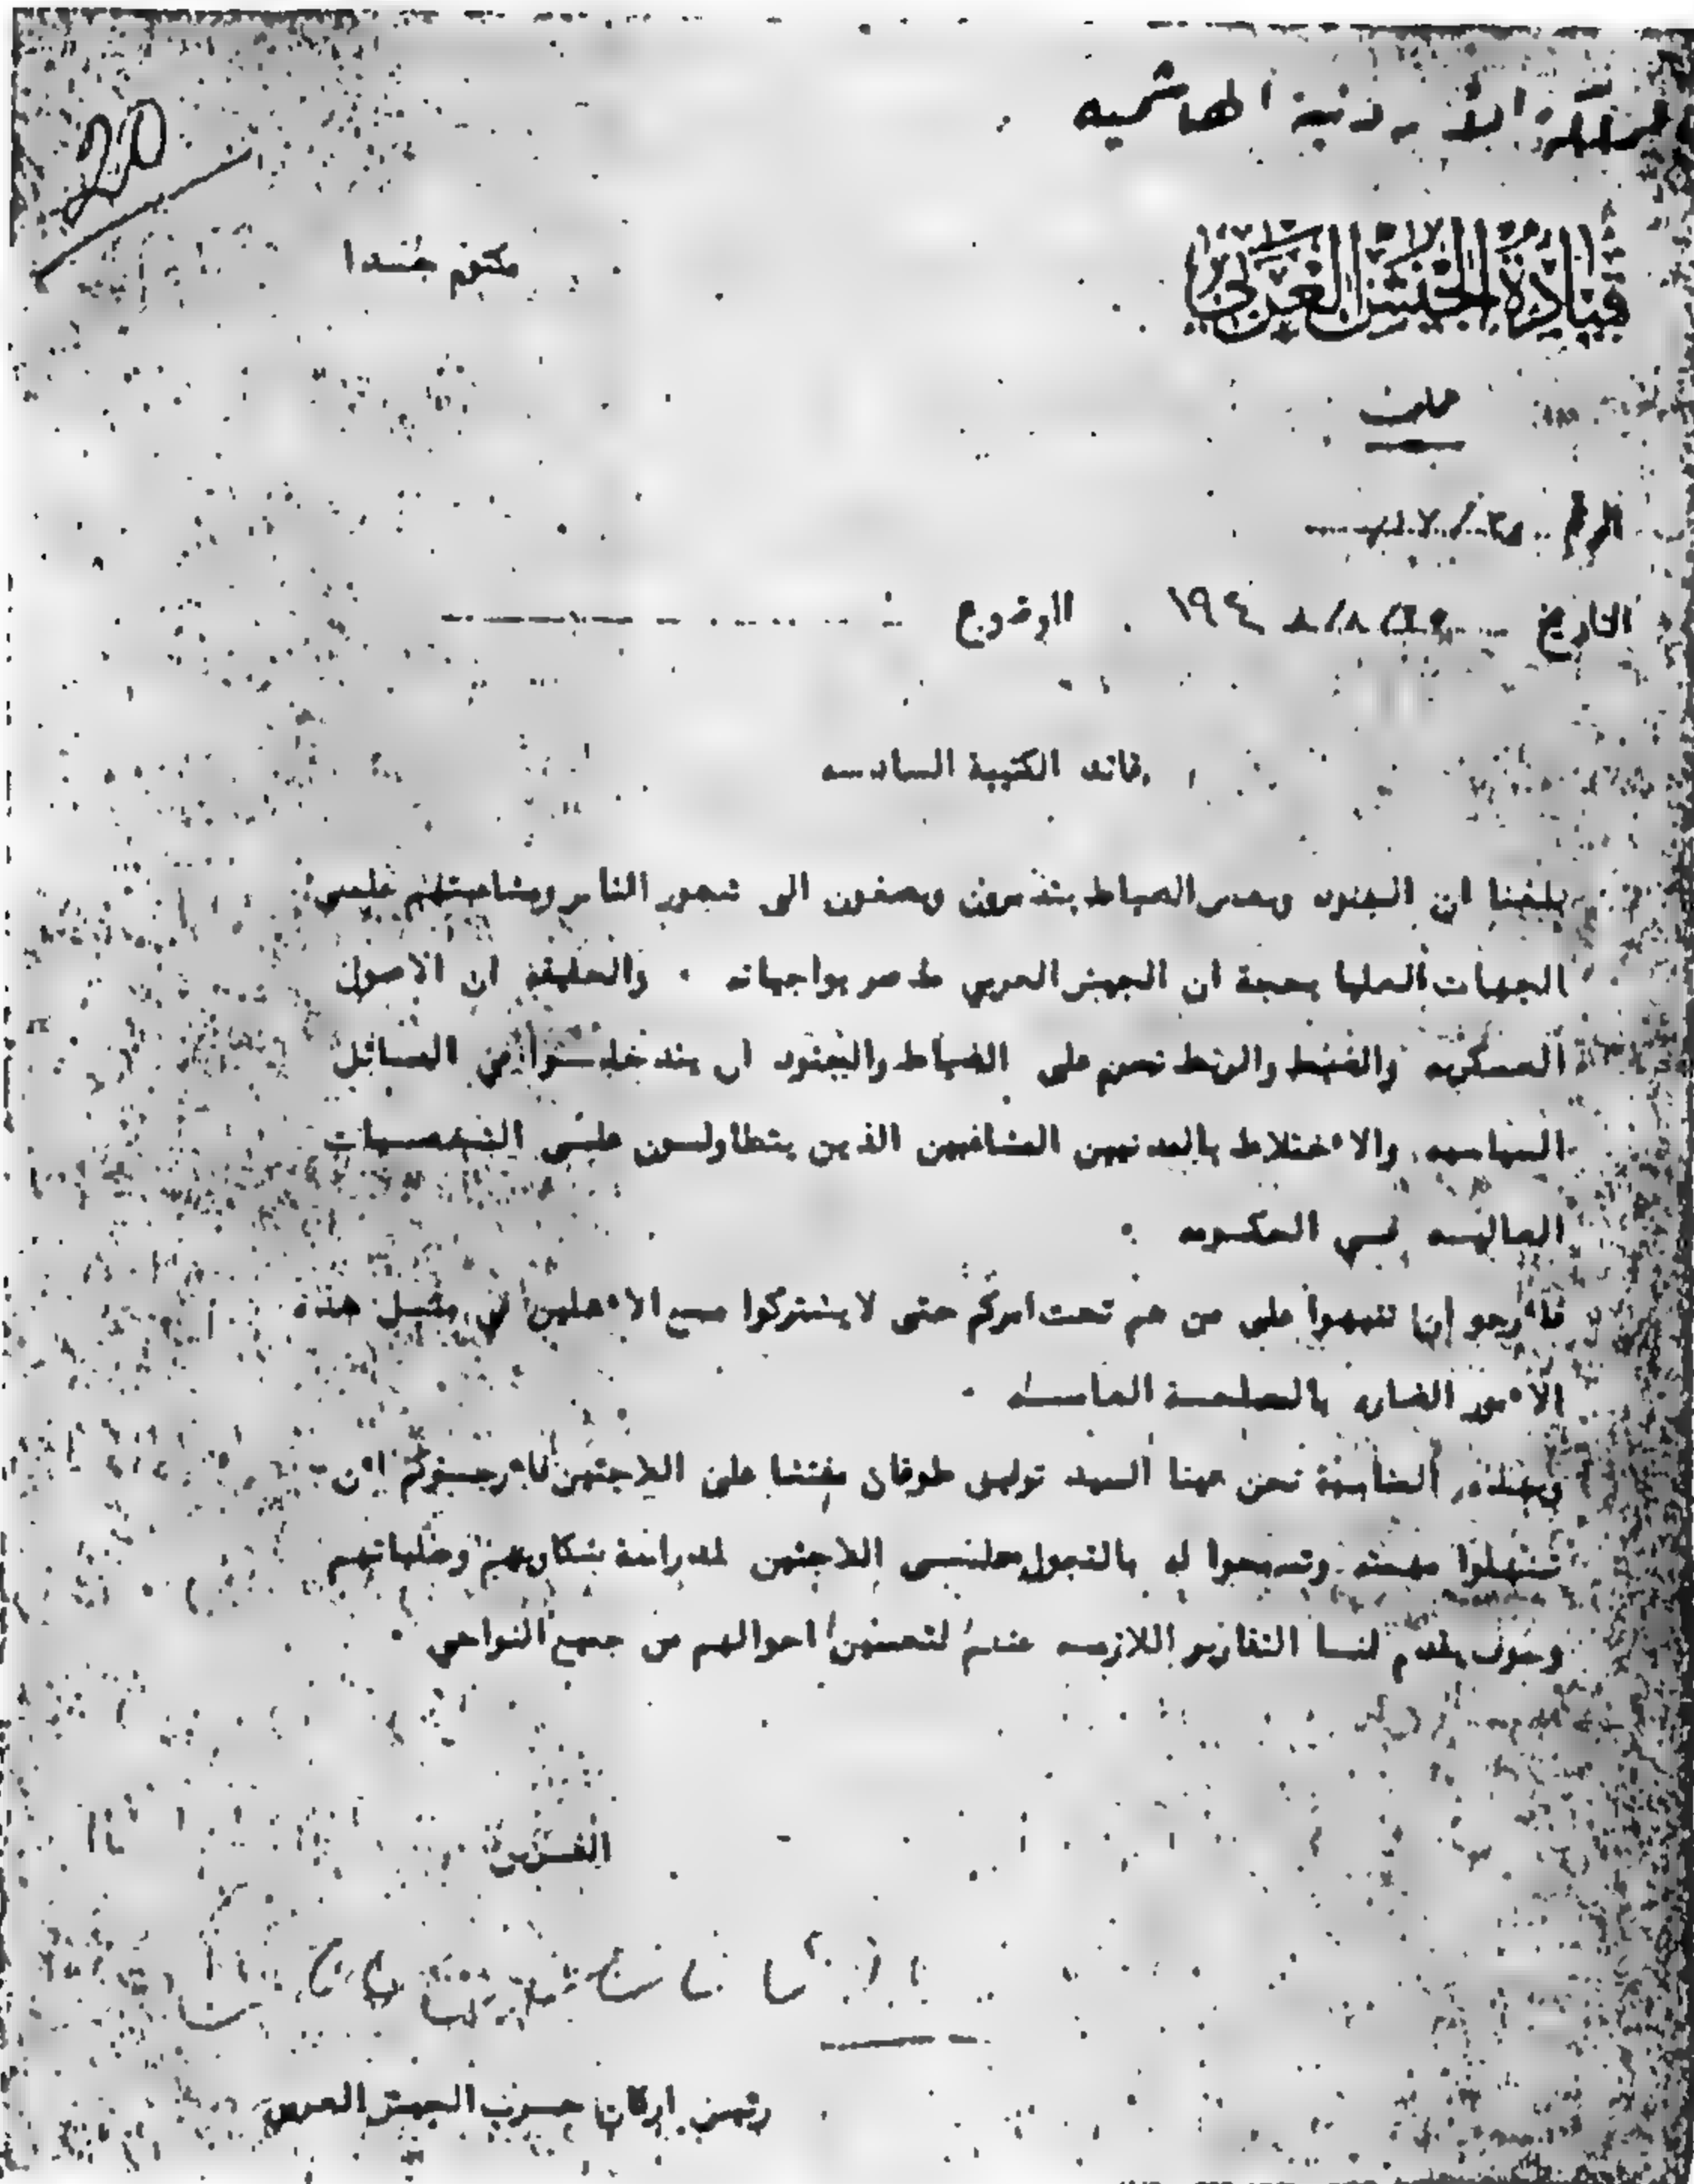 20
المملكة الأردنية الهاشمية
مكتوم جدا
قيادة الجيش العربي
الرقم
التاريخ ٨/٨ ١٩٤ الموضوع
قائد الكتيبة السادسه
بلغنا ان الجنود وبعض الضباط يتذمرون ويصغون الى تهور الناس ومشاغبتهم على
الجهات العليا بحجة ان الجيش العربي قصر بواجباته . والحقيقة ان الاصول
العسكريه والضبط والربط تحرم على الضباط والجنود ان يتدخلوا في المسائل
السياسيه والاختلاط بالمدنيين المشاغبين الذين يتطاولون على الشخصيات
العاليه في الحكومه .
فأرجو ان تنبهوا على من هم تحت امركم حتى لا يشتركوا مع الأهلين في مثيل هذه
الأمور الضاره بالمصلحة العامه .
وبهذه المناسبة نحن عينا السيد توفيق طوقان مفتشا على اللاجئين فأرجوكم أن
تسهلوا مهمته وتسمحوا له بالتجول على اللاجئين لدراسة شكاويهم وطلباتهم
وسوف يقدم لنا التقارير اللازمه عنهم لتحسين احوالهم من جميع النواحي .
الفريق
رئيس اركان حرب الجيش العربي